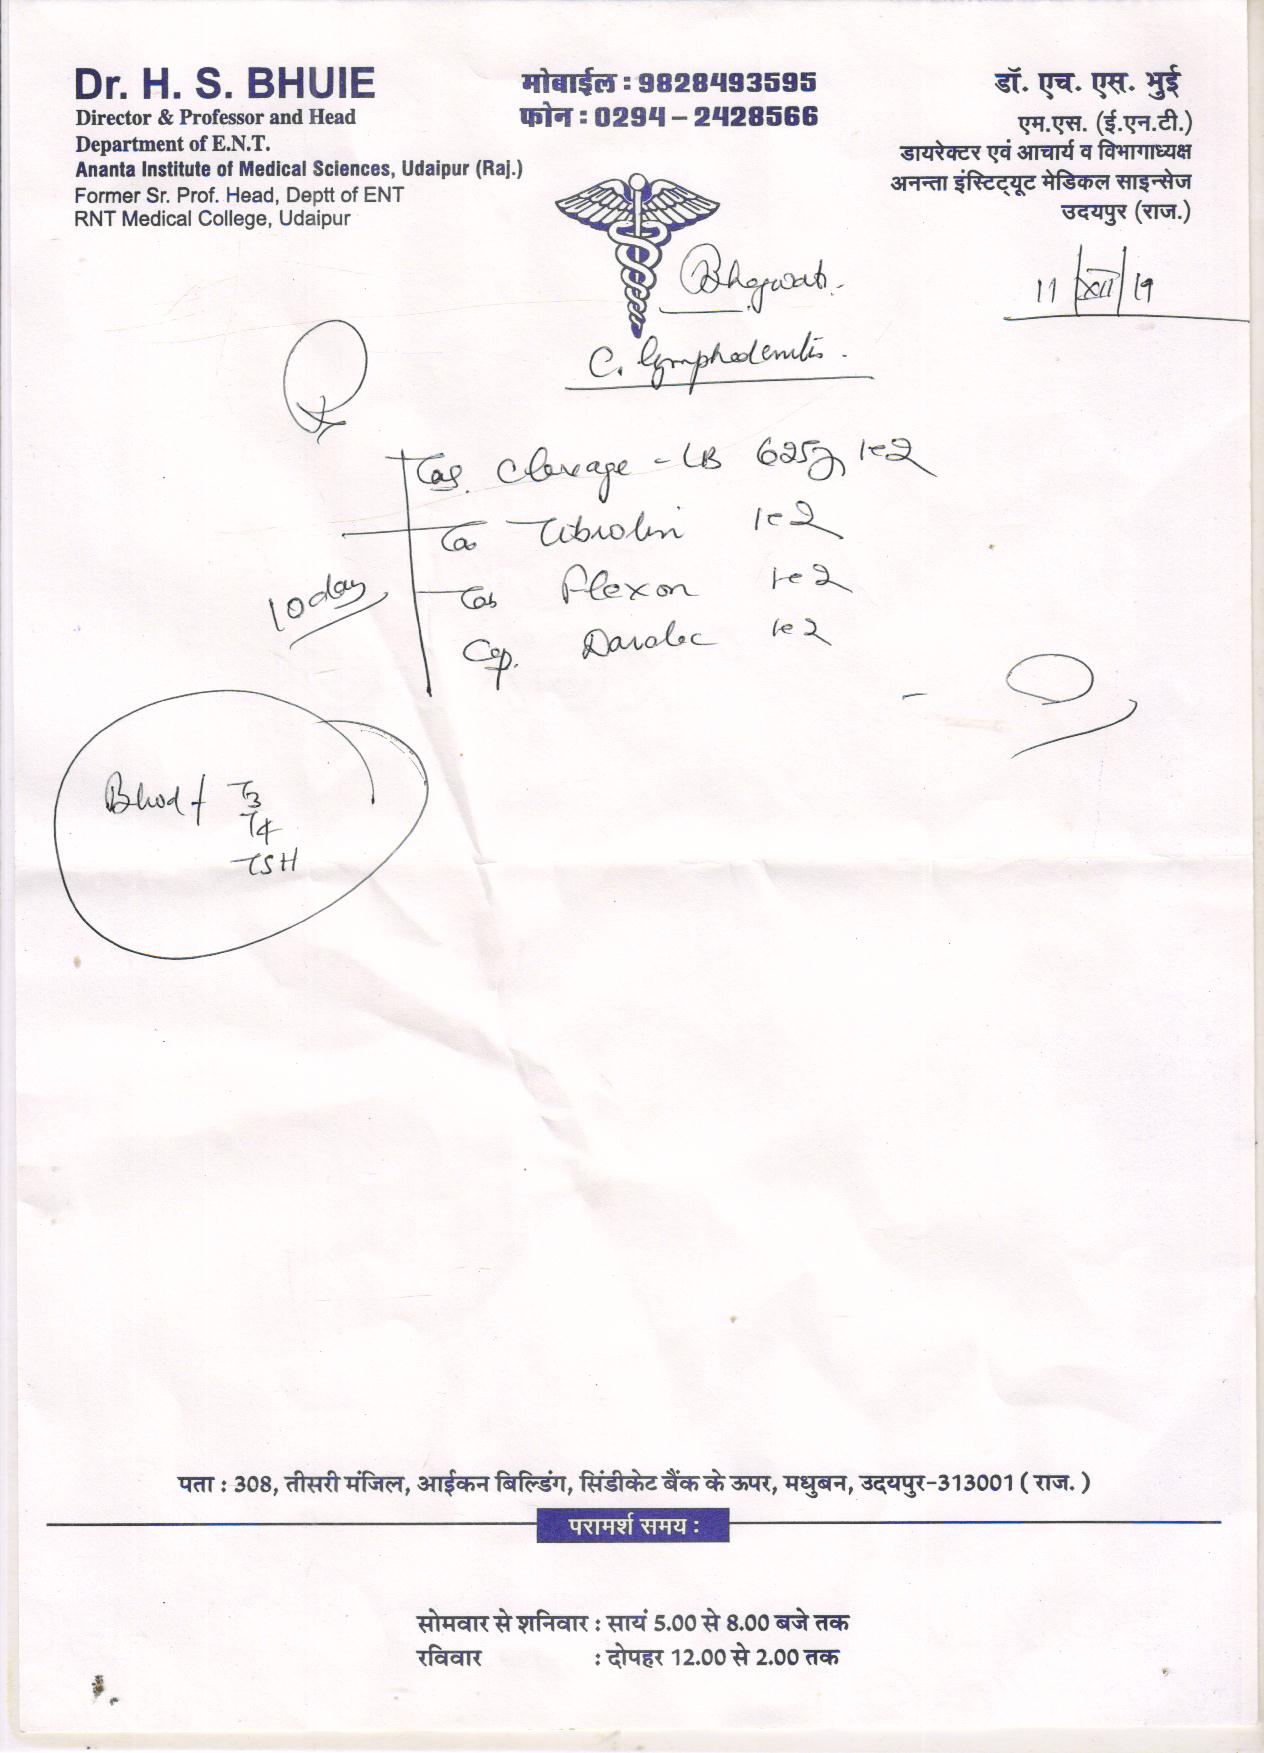 Dr. H. S. BHUIE
Director & Professor and Head
Department of E.N.T.
Ananta Institute of Medical Sciences, Udaipur (Raj.)
Former Sr. Prof. Head, Deptt of ENT
RNT Medical College, Udaipur
मोबाईल : 9828493595
फोन : 0294 – 2428566
डॉ. एच. एस. भुई
एम.एस. (ई.एन.टी.)
डायरेक्टर एवं आचार्य व विभागाध्यक्ष
अनन्ता इंस्टिट्यूट मेडिकल साइन्सेज
उदयपुर (राज.)
Bhagwati
11/XII/19
C. lymphodenitis.
Rx
625
Flexon 1-2
Cap. 1-2
10 day
Blood f T3
T4
TSH
पता : 308, तीसरी मंजिल, आईकन बिल्डिंग, सिंडीकेट बैंक के ऊपर, मधुबन, उदयपुर-313001 ( राज. )
परामर्श समय :
सोमवार से शनिवार : सायं 5.00 से 8.00 बजे तक
रविवार : दोपहर 12.00 से 2.00 तक